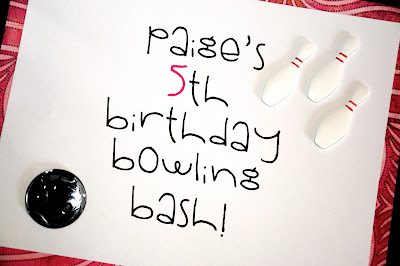 paige's
5th
birthday
bowling
bash!